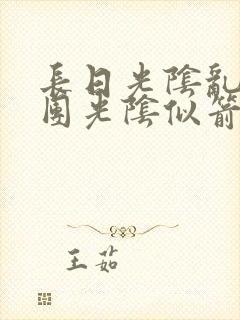 長日光陰亂
園光陰似箭
王茹